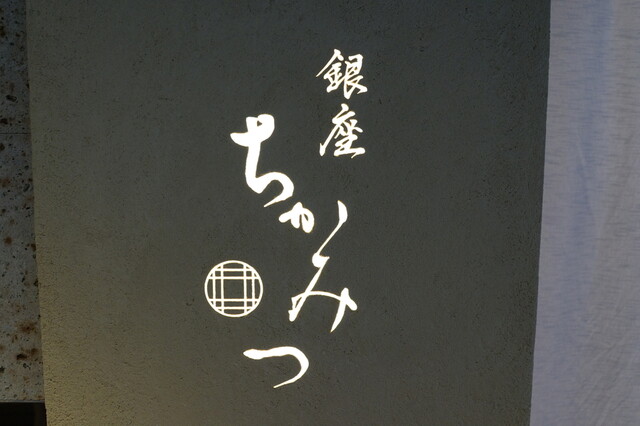 銀座
ちかみつ